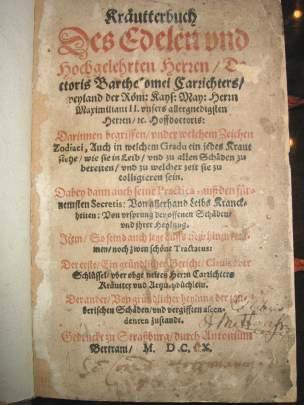 Kräutterbuch
Des Edelen vnd
Hochgelehrten Herren / Do-
ctoris Barthe omei Carrichters /
weyland der Röm: Kays: May: Herrn
Maximiliani II. vnsers allergnedigsten
Herren / ꝛc. Hoffdoctoris:
Darinnen begriffen / vnder welchem Zeichen
Zodiaci, Auch in welchem Gradu ein jedes Kraut
stehe / wie sie in Leib / vnd zu allen Schäden zu
bereiten / vnd zu welcher zeit sie zu
colligieren sein.
Dabey dann auch seine Practica, auß den für-
nemsten Secretis: Von allerhand Leibs Kranck-
heiten: Von vrsprung der offenen Schäden
vnd jhrer Heylung.
Item / So seind auch jetz auffs new hinzu kom-
men / noch zwen schöne Tractatus:
Der erste / Ein gründlicher Bericht / Clauis oder
Schlüssel / vber obge
Herrn Carrichters
Kräutter vnd Artzneybüchlein.
Der ander / Von gründlicher heylung der
berischen Schäden / vnd vergifften
zustandt.
Gedruckt zu Straßburg / durch Antonium
Bertram / M. D. C. X.